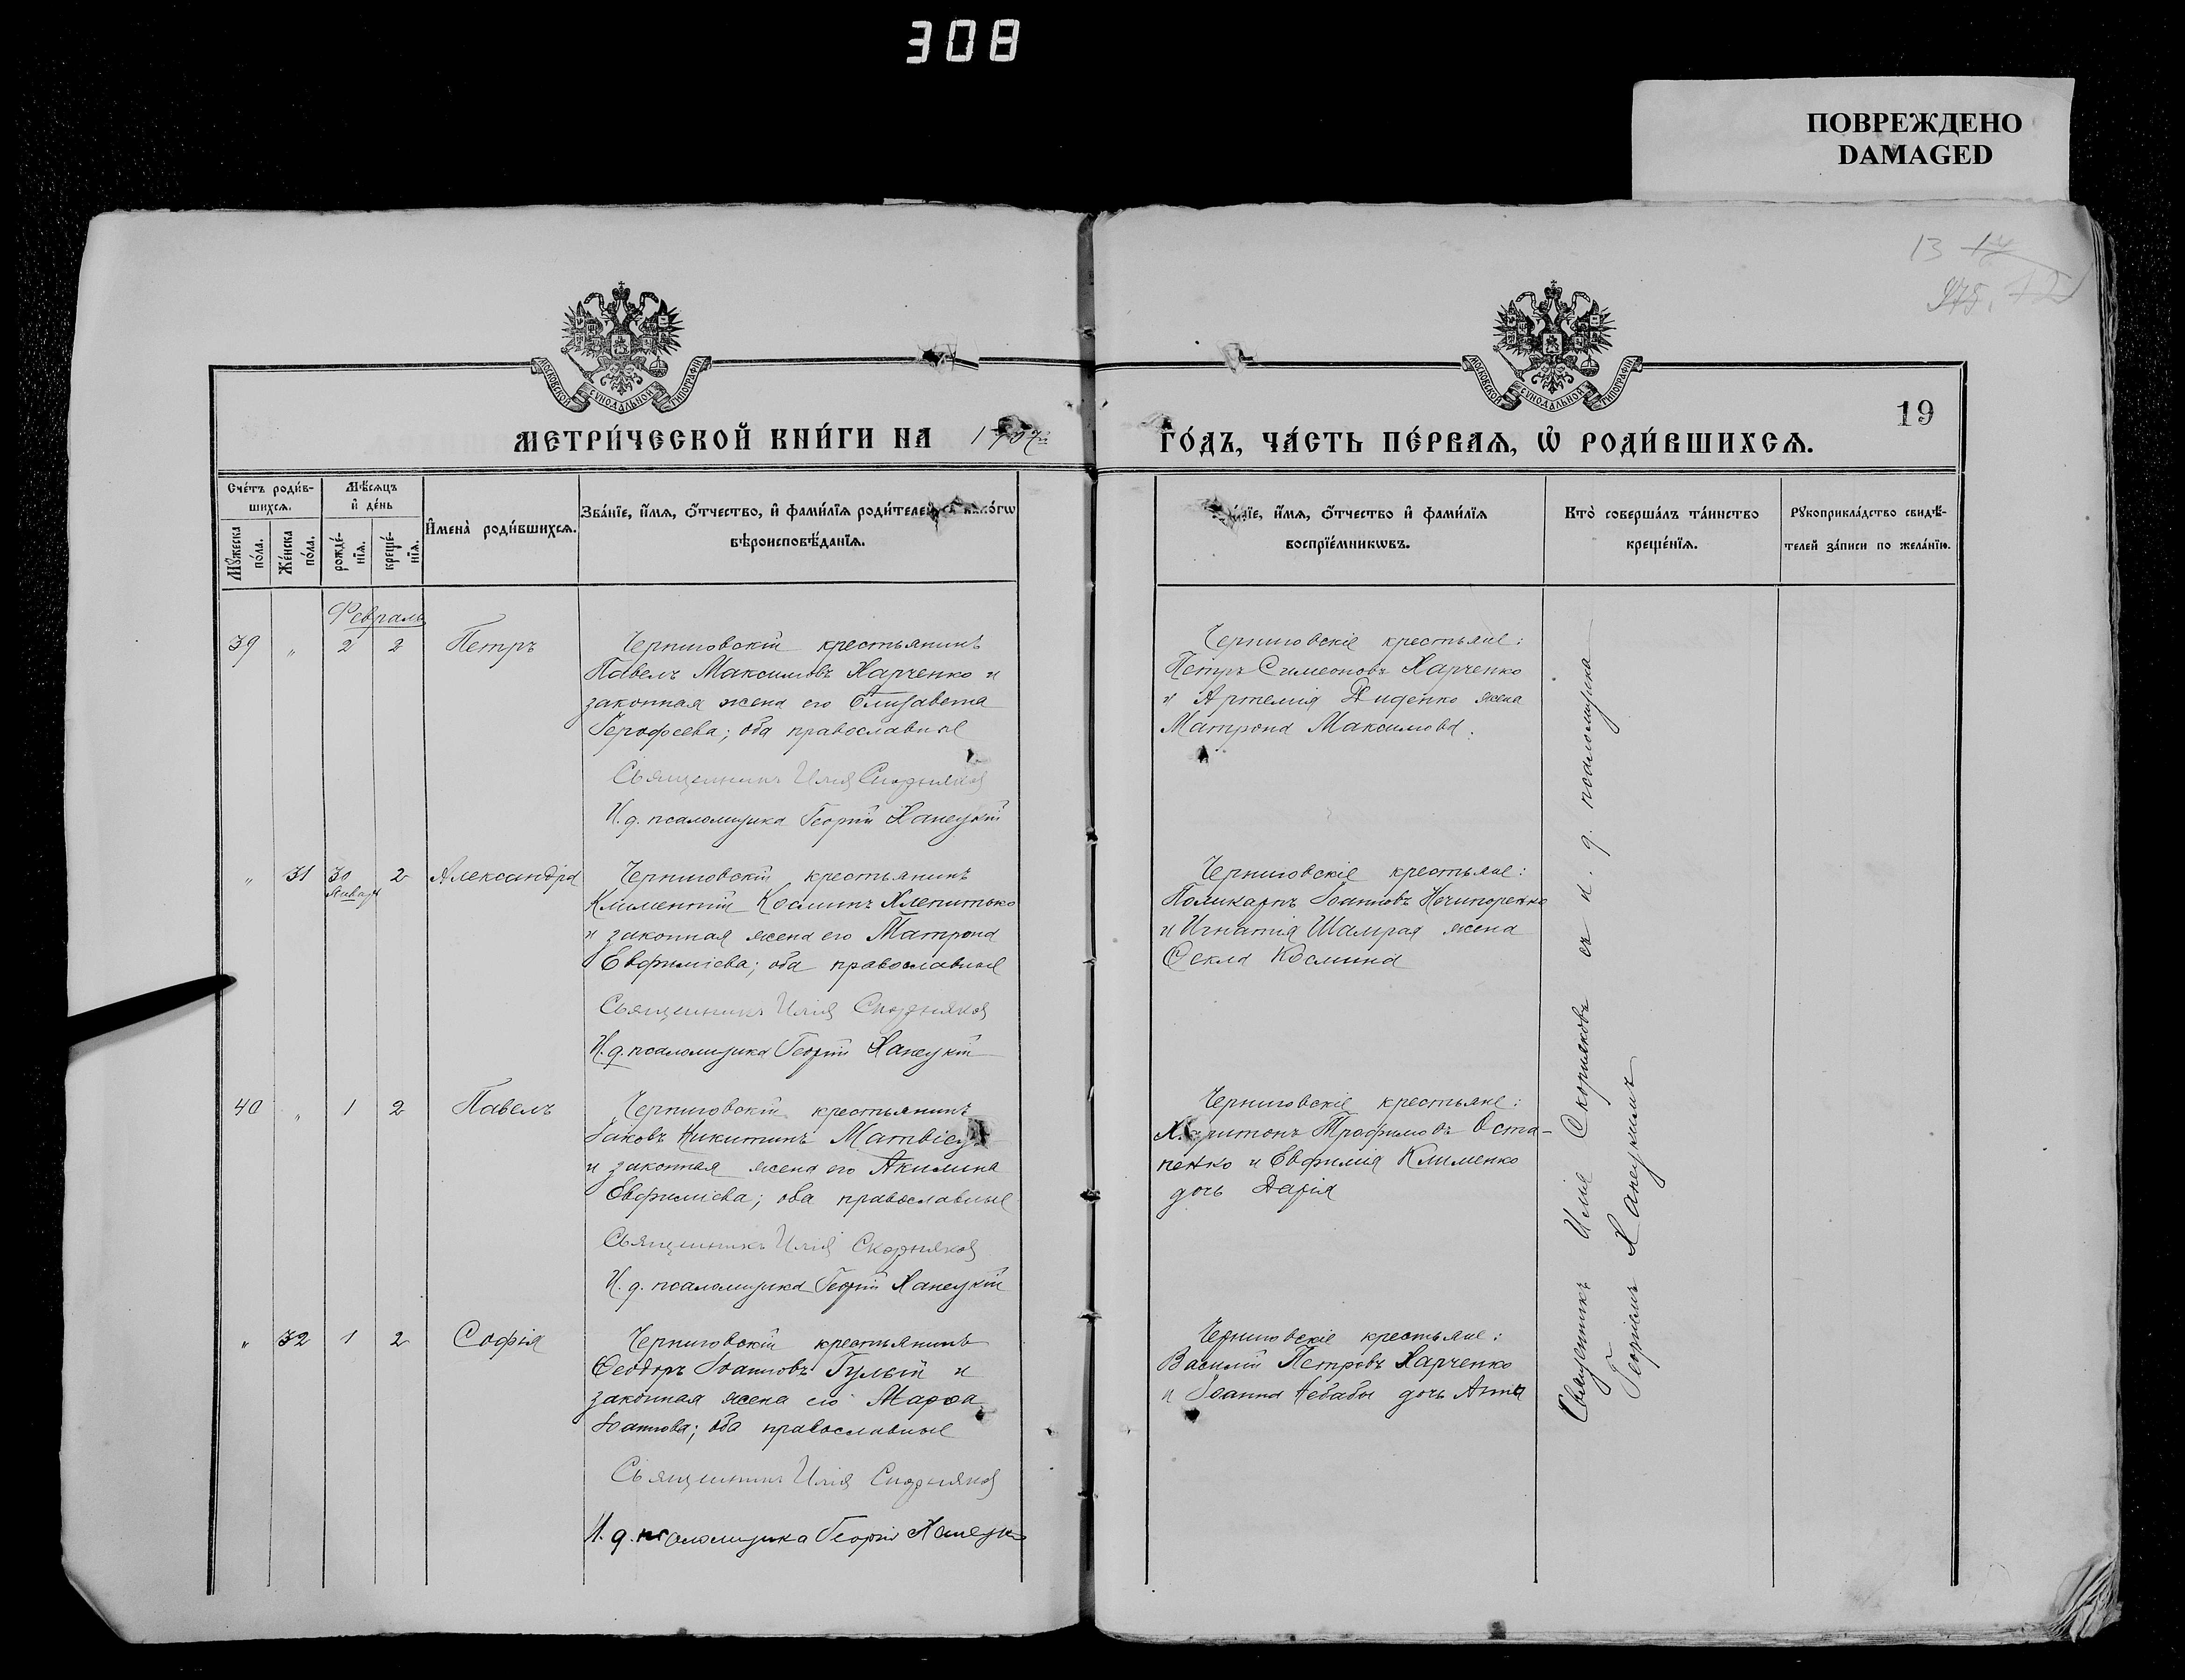 308
ПОВРЕЖДЕНО
DAMAGED
13
МОСКОВСКОЙ СУНОДАЛЬНОЙ ТИПОГРАФІИ
МОСКОВСКОЙ СУНОДАЛЬНОЙ ТИПОГРАФІИ
19
МЕТРИ́ЧЕСКОЙ КНИ́ГИ НА 1907й ГО́ДЪ, ЧА́СТЬ ПЕ́РВАѦ, Ѡ҆ РОДИ́ВШИХСѦ.
Сче́тъ роди́в-
шихсѧ.
Мꙋ́жеска
по́ла.
Же́нска
по́ла.
Мѣ́сѧцъ
и҆ де́нь
рожде́-
нїѧ.
креще́-
нїѧ.
И҆мена̀ роди́вшихсѧ.
Зва́нїе, и҆́мѧ, ѻ҆́тчество, и҆ фами́лїѧ роди́телей,
вѣроисповѣ́данїѧ.
и҆́мѧ, ѻ҆́тчество и҆ фами́лїѧ
воспрїе́мникѡвъ.
Кто̀ соверша́лъ та́инство
креще́нїѧ.
Рꙋкоприкла́дство свидѣ́-
телей за́писи по жела́нїю.
Февраль
39 " 2 2 Петръ
Черниговскій крестьянинъ
Павелъ Максимовъ Харченко и
законная жена его Елизавета
Герофеева; оба православные
Священникъ Илія Скорняковъ
И. д. псаломщика Георгій Ханецкій
Черниговскіе крестьяне:
Петръ Симеоновъ Харченко
и Артемія Диденко жена
Матрона Максимова.
" 31 30 Января 2 Александра
Черниговскій крестьянинъ
Климентій Косминъ Хлепитько
и законная жена его Матрона
Евфиміева; оба православные
Священникъ Илія Скорняковъ
И. д. псаломщика Георгій Ханецкій
Черниговскіе крестьяне:
Поликарпъ Іоанновъ Нечипоренко
и Игнатія Шамрая жена
Ѳекла Космина
40 " 1 2 Павелъ
Черниговскій крестьянинъ
Іаковъ Никитинъ
и законная жена его Акилина
Евфиміева; оба православные
Священникъ Илія Скорняковъ
И. д. псаломщика Георгій Ханецкій
Черниговскіе крестьяне:
Харитонъ Трофимовъ Оста-
пенко и Евфимія Клименко
дочь Дарія
" 32 1 2 Софія
Черниговскій крестьянинъ
Ѳеодоръ Іоанновъ Гулый и
законная жена его Марѳа
Іоаннова; оба православные
Священникъ Илія Скорняковъ
И. д. псаломщика Георгій Ханецкій
Черниговскіе крестьяне:
Василій Петровъ Харченко
и Іоанна Небабы дочь Анна
Священникъ Илія Скорняковъ съ и. д. псаломщика
Георгіемъ Ханецкимъ